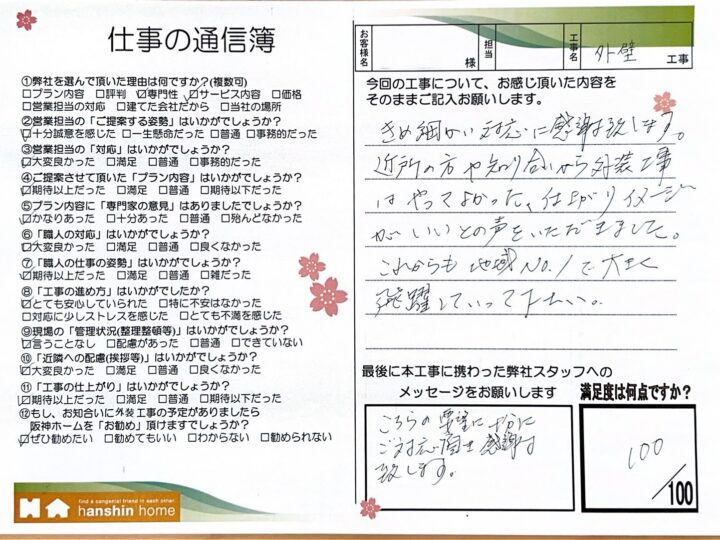 仕事の通信簿
①弊社を選んで頂いた理由は何ですか?(複数可)
□プラン内容 □評判 ☑専門性 ☑サービス内容 □価格
□営業担当の対応 □建てた会社だから □当社の場所
②営業担当の「ご提案する姿勢」はいかがでしょうか?
☑十分誠意を感じた □一生懸命だった □普通 □事務的だった
③営業担当の「対応」はいかがでしょうか?
☑大変良かった □満足 □普通 □事務的だった
④ご提案させて頂いた「プラン内容」はいかがでしょうか?
☑期待以上だった □満足 □普通 □期待以下だった
⑤プラン内容に「専門家の意見」はありましたでしょうか?
☑かなりあった □十分あった □普通 □殆んどなかった
⑥「職人の対応」はいかがでしょうか?
☑大変良かった □満足 □普通 □良くなかった
⑦「職人の仕事の姿勢」はいかがでしょうか?
☑期待以上だった □満足 □普通 □雑だった
⑧「工事の進め方」はいかがでしたか?
☑とても安心していられた □特に不安はなかった
□対応に少しストレスを感じた □とても不満を感じた
⑨現場の「管理状況(整理整頓等)」はいかがでしょうか?
☑言うことなし □配慮があった □普通 □できていない
⑩「近隣への配慮(挨拶等)」はいかがでしょうか?
☑大変良かった □満足 □普通 □良くなかった
⑪「工事の仕上がり」はいかがでしょうか?
☑期待以上だった □満足 □普通 □期待以下だった
⑫もし、お知合いに外装工事の予定がありましたら
阪神ホームを「お勧め」頂けますでしょうか?
☑ぜひ勧めたい □勧めてもいい □わからない □勧められない
find a congenial friend in each other.
hanshin home
お客様名 様 担当 工事名 外壁 工事
今回の工事について、お感じ頂いた内容を
そのままご記入お願いします。
きめ細かい対応に感謝致します。
近所の方や知り合いから外装工事
はやってよかった、仕上がりイメージ
がいいとの声をいただきました。
これからも地域No.1で大きく
飛躍していって下さい。
最後に本工事に携わった弊社スタッフへの
メッセージをお願いします
こちらの要望に十分に
ご対応頂き感謝
致します。
満足度は何点ですか?
100
/100